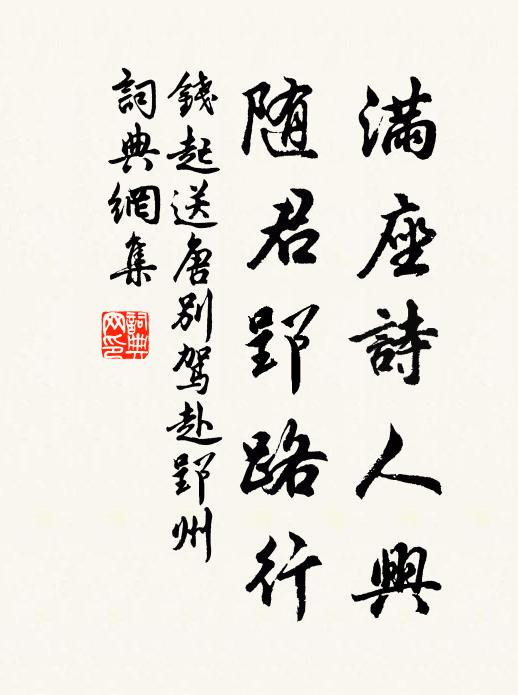 满座詩人興
随君郢路行
錢起送唐别駕赴郢州
詞典網集
詞典
网印